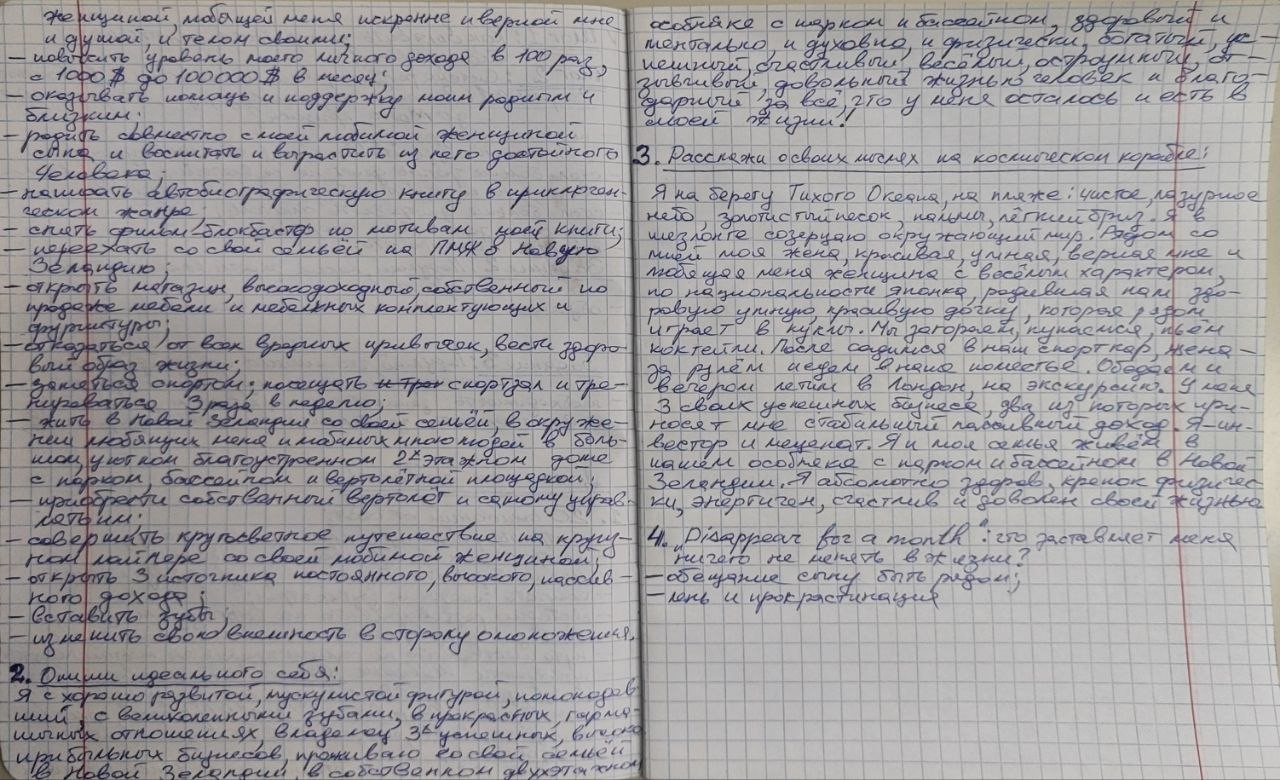 женщиной, любящей меня искренне и верной мне
и душой, и телом своими;
– повысить уровень моего личного дохода в 100 раз,
с 1000$ до 100000$ в месяц;
– оказывать помощь и поддержку моим родным и
близким;
– родить совместно с моей любимой женщиной
сына и воспитать и вырастить из него достойного
Человека;
– написать автобиографическую книгу в приключен-
ческом жанре;
– снять фильм-блокбастер по мотивам моей книги;
– переехать со свой семьёй на ПМЖ в Новую
Зеландию;
– открыть магазин, высокодоходный, собственный по
продаже мебели и мебельных комплектующих и
фурнитуры;
– отказаться от всех вредных привычек, вести здоро-
вый образ жизни;
– заняться спортом; посещать спортзал и тре-
нироваться 3 раза в неделю;
– жить в Новой Зеландии со своей семьёй, в окруже-
нии любящих меня и любимых мною людей в боль-
шом, уютном благоустроенном 2х этажном доме
с парком, бассейном и вертолётной площадкой;
– приобрести собственный вертолёт и самому управ-
лять им;
– совершить кругосветное путешествие на круиз-
ном лайнере со своей любимой женщиной;
– открыть 3 источника постоянного, высокого, пассив-
ного дохода;
– вставить зубы;
– изменить свою внешность в сторону омоложения.
2. Опиши идеального себя:
Я с хорошо развитой, мускулистой фигурой, помолодев
ший, с великолепными зубами, в прекрасных, гармо-
ничных отношениях, владелец 3х успешных, высоко
прибыльных бизнесов, проживаю со свой семьёй
в Новой Зеландии, в собственном двухэтажном
особняке с парком и бассейном, здоровый и
ментально, и духовно, и физически, богатый, ус-
пешный, счастливый, весёлый, остроумный, от-
зывчивый, довольный жизнью человек и благо-
дарный за всё, что у меня осталось и есть в
моей жизни!
3. Расскажи о своих мыслях на космическом корабле:
Я на берегу Тихого Океана, на пляже: чистое, лазурное
небо, золотистый песок, пальмы, лёгкий бриз. Я в
шезлонге созерцаю окружающий мир. Рядом со
мной моя жена, красивая, умная, верная мне и
любящая меня женщина с весёлым характером,
по национальности японка, родившая нам здо-
ровую умную, красивую дочку, которая рядом
играет в куклы. Мы загораем, купаемся, пьём
коктейли. После садимся в наш спорткар, жена –
за рулём и едем в наше поместье. Обедаем и
вечером летим в Лондон, на экскурсию. У меня
3 своих успешных бизнеса, два из которых при-
носят мне стабильный пассивный доход. Я – ин-
вестор и меценат. Я и моя семья живём в
нашем особняке с парком и бассейном в Новой
Зеландии. Я абсолютно здоров, крепок физичес-
ки, энергичен, счастлив и доволен своей жизнью
4. „Disappear for a month“: что заставляет меня
ничего не менять в жизни?
– обещание сыну быть рядом;
– лень и прокрастинация